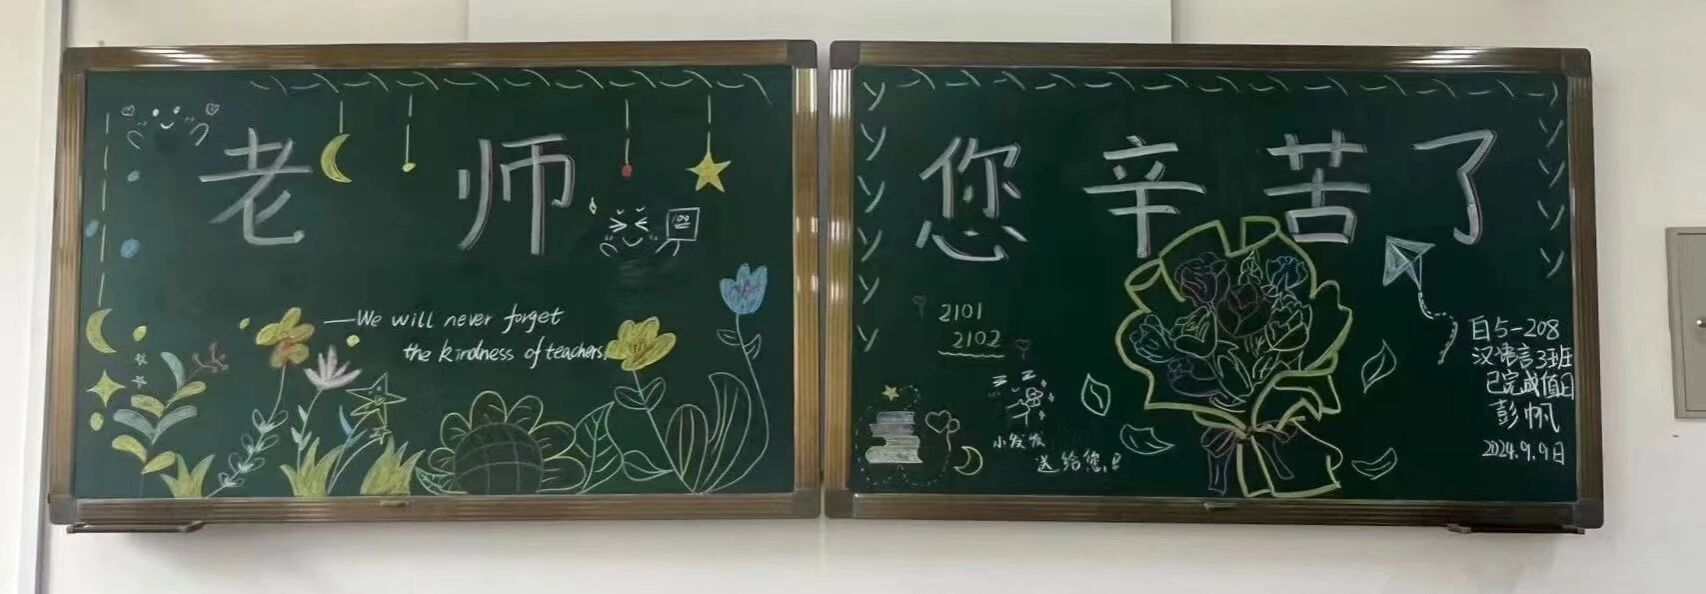 老师
100
——We will never forget
the kindness of teachers.
您辛苦了
2101
2102
z z
小发发
送给您!
自5-208
汉语言3班
已完成值日
彭帆
2024.9.9日